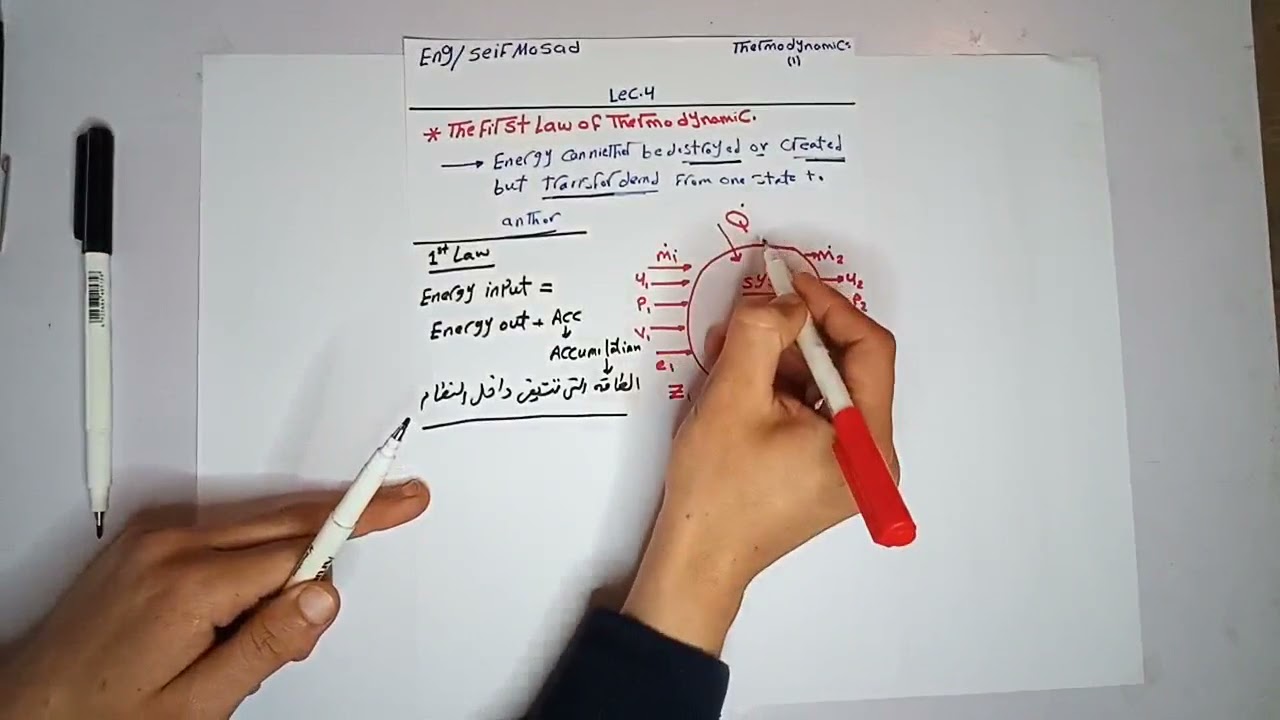 Eng/ Seif Mosad
Thermodynamics
(1)
Lec.4
* The First Law of Thermodynamic.
→ Energy canniether be destroyed or created
but transfordemd From one state to
anthor
1st Law
Energy input =
Energy out + Acc
↓
Accumilation
↓
الطاقه التي تتبقى داخل النظام
Q̇
ṁ1
u1
P1
V1
e1
Z1
sys
ṁ2
u2
P2